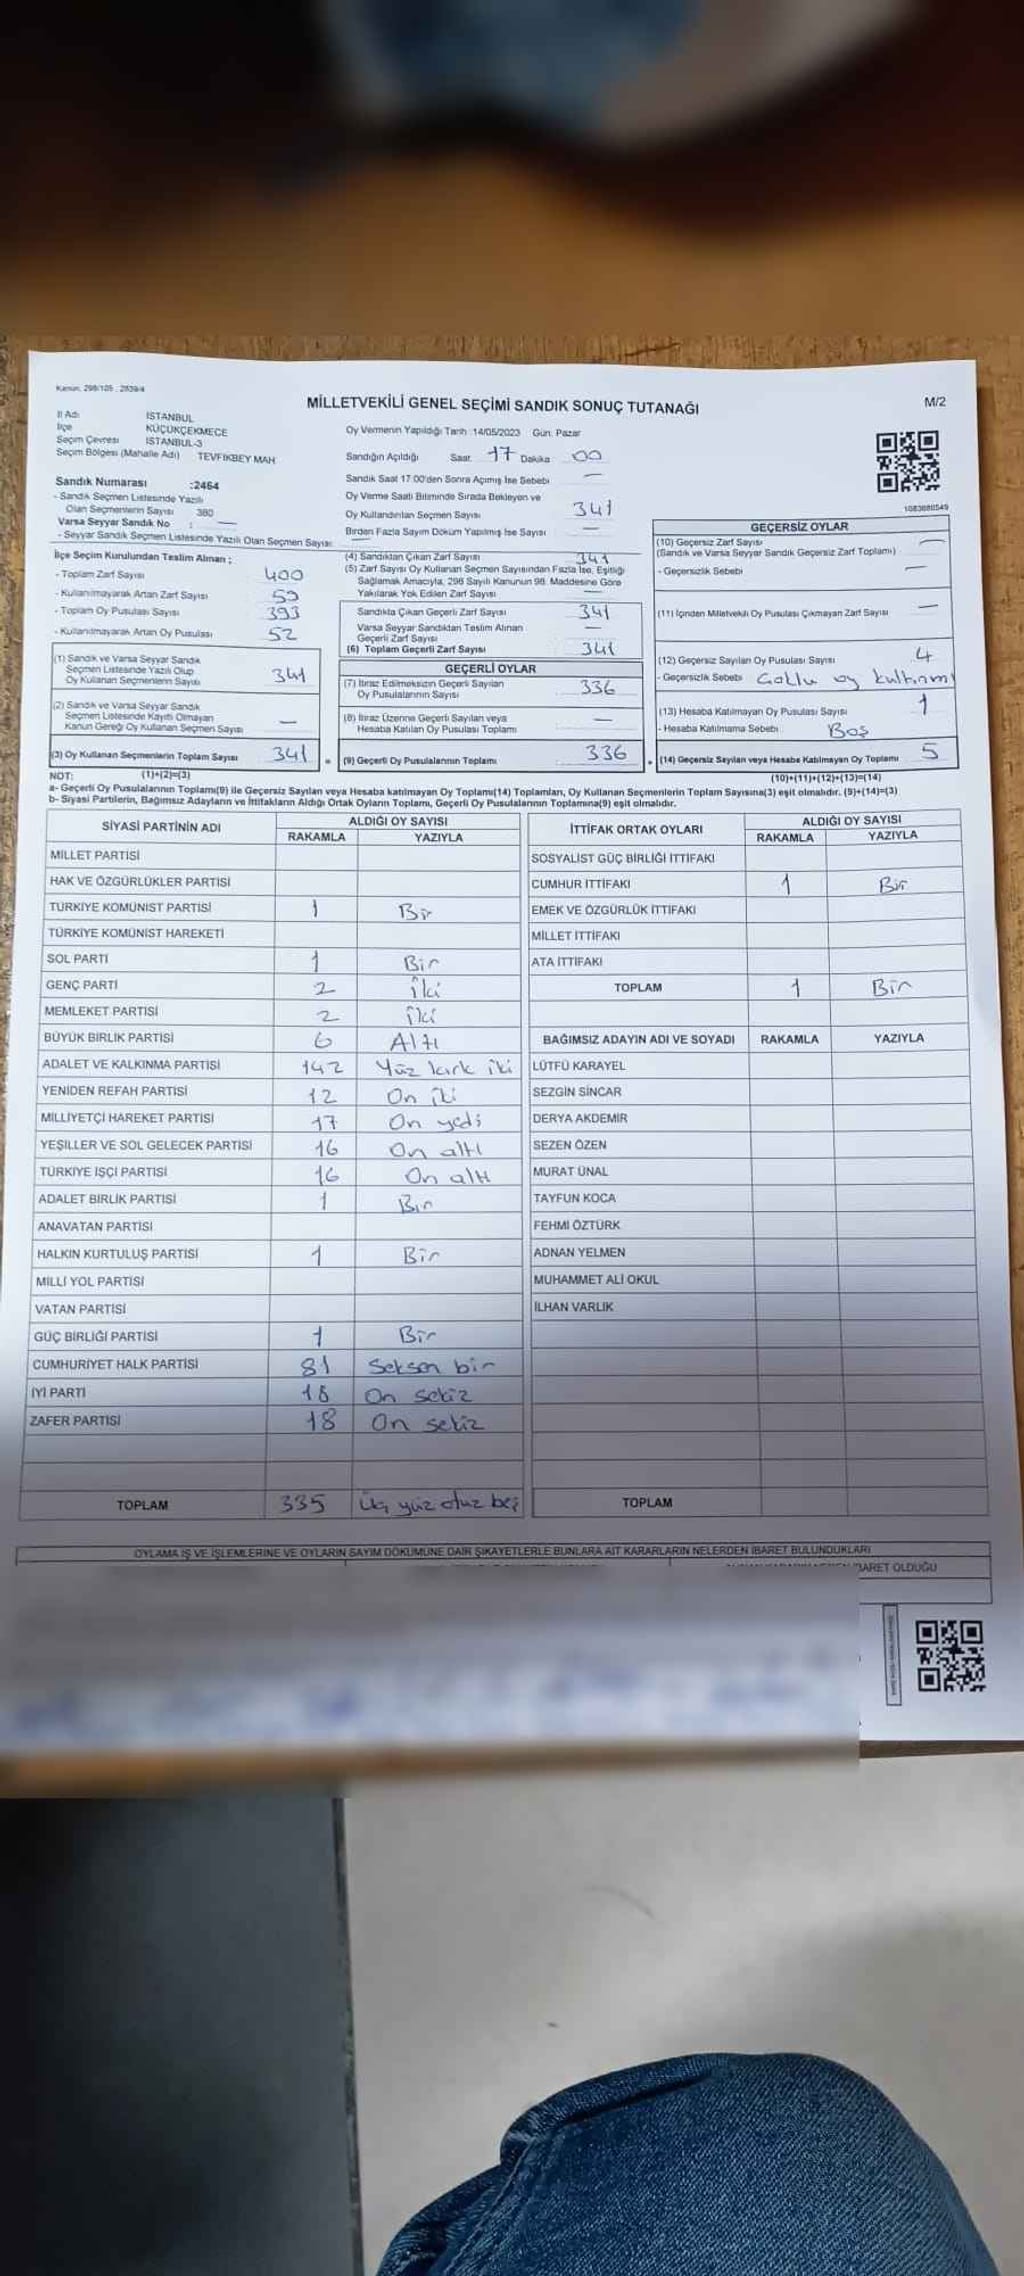 Kanun: 298/105 , 2839/4
MİLLETVEKİLİ GENEL SEÇİMİ SANDIK SONUÇ TUTANAĞI
M/2
İl Adı: İSTANBUL
İlçe KÜÇÜKÇEKMECE
Seçim Çevresi İSTANBUL-3
Seçim Bölgesi (Mahalle Adı) TEVFİKBEY MAH
Oy Vermenin Yapıldığı Tarih :14/05/2023 Gün: Pazar
Sandığın Açıldığı Saat: 17 Dakika 00
Sandık Saat 17:00'den Sonra Açımış İse Sebebi —
Oy Verme Saati Bitiminde Sırada Bekleyen ve
Oy Kullandırılan Seçmen Sayısı 341
Birden Fazla Sayım Döküm Yapılmış İse Sayısı —
1083680549
Sandık Numarası :2464
- Sandık Seçmen Listesinde Yazılı
Olan Seçmenlerin Sayısı 380
Varsa Seyyar Sandık No : —
- Seyyar Sandık Seçmen Listesinde Yazılı Olan Seçmen Sayısı: —
İlçe Seçim Kurulundan Teslim Alınan ;
- Toplam Zarf Sayısı 400
- Kullanılmayarak Artan Zarf Sayısı 59
- Toplam Oy Pusulası Sayısı 393
- Kullanılmayarak Artan Oy Pusulası 52
(1) Sandık ve Varsa Seyyar Sandık
Seçmen Listesinde Yazılı Olup
Oy Kullanan Seçmenlerin Sayısı 341
(2) Sandık ve Varsa Seyyar Sandık
Seçmen Listesinde Kayıtlı Olmayan
Kanun Gereği Oy Kullanan Seçmen Sayısı —
(3) Oy Kullanan Seçmenlerin Toplam Sayısı 341
(1)+(2)=(3)
(4) Sandıktan Çıkan Zarf Sayısı 341
(5) Zarf Sayısı Oy Kullanan Seçmen Sayısından Fazla İse, Eşitliği
Sağlamak Amacıyla, 298 Sayılı Kanunun 98. Maddesine Göre
Yakılarak Yok Edilen Zarf Sayısı —
Sandıkta Çıkan Geçerli Zarf Sayısı 341
Varsa Seyyar Sandıktan Teslim Alınan
Geçerli Zarf Sayısı —
(6) Toplam Geçerli Zarf Sayısı 341
GEÇERLİ OYLAR
(7) İtiraz Edilmeksizin Geçerli Sayılan
Oy Pusulalarının Sayısı 336
(8) İtiraz Üzerine Geçerli Sayılan veya
Hesaba Katılan Oy Pusulası Toplamı —
= (9) Geçerli Oy Pusulalarının Toplamı 336
GEÇERSİZ OYLAR
(10) Geçersiz Zarf Sayısı —
(Sandık ve Varsa Seyyar Sandık Geçersiz Zarf Toplamı)
- Geçersizlik Sebebi —
(11) İçinden Milletvekili Oy Pusulası Çıkmayan Zarf Sayısı —
(12) Geçersiz Sayılan Oy Pusulası Sayısı 4
- Geçersizlik Sebebi Çoklu oy kullanımı
(13) Hesaba Katılmayan Oy Pusulası Sayısı 1
- Hesaba Katılmama Sebebi Boş
+ (14) Geçersiz Sayılan veya Hesaba Katılmayan Oy Toplamı 5
(10)+(11)+(12)+(13)=(14)
NOT:
a- Geçerli Oy Pusulalarının Toplamı(9) ile Geçersiz Sayılan veya Hesaba katılmayan Oy Toplamı(14) Toplamları, Oy Kullanan Seçmenlerin Toplam Sayısına(3) eşit olmalıdır. (9)+(14)=(3)
b- Siyasi Partilerin, Bağımsız Adayların ve İttifakların Aldığı Ortak Oyların Toplamı, Geçerli Oy Pusulalarının Toplamına(9) eşit olmalıdır.
SİYASİ PARTİNİN ADI ALDIĞI OY SAYISI
RAKAMLA YAZIYLA
MİLLET PARTİSİ
HAK VE ÖZGÜRLÜKLER PARTİSİ
TÜRKİYE KOMÜNİST PARTİSİ 1 Bir
TÜRKİYE KOMÜNİST HAREKETİ
SOL PARTİ 1 Bir
GENÇ PARTİ 2 İki
MEMLEKET PARTİSİ 2 İki
BÜYÜK BİRLİK PARTİSİ 6 Altı
ADALET VE KALKINMA PARTİSİ 142 Yüz kırk iki
YENİDEN REFAH PARTİSİ 12 On iki
MİLLİYETÇİ HAREKET PARTİSİ 17 On yedi
YEŞİLLER VE SOL GELECEK PARTİSİ 16 On altı
TÜRKİYE İŞÇİ PARTİSİ 16 On altı
ADALET BİRLİK PARTİSİ 1 Bir
ANAVATAN PARTİSİ
HALKIN KURTULUŞ PARTİSİ 1 Bir
MİLLİ YOL PARTİSİ
VATAN PARTİSİ
GÜÇ BİRLİĞİ PARTİSİ 1 Bir
CUMHURİYET HALK PARTİSİ 81 Seksen bir
İYİ PARTİ 18 On sekiz
ZAFER PARTİSİ 18 On sekiz
TOPLAM 335 Üç yüz otuz beş
İTTİFAK ORTAK OYLARI ALDIĞI OY SAYISI
RAKAMLA YAZIYLA
SOSYALİST GÜÇ BİRLİĞİ İTTİFAKI
CUMHUR İTTİFAKI 1 Bir
EMEK VE ÖZGÜRLÜK İTTİFAKI
MİLLET İTTİFAKI
ATA İTTİFAKI
TOPLAM 1 Bir
BAĞIMSIZ ADAYIN ADI VE SOYADI RAKAMLA YAZIYLA
LÜTFÜ KARAYEL
SEZGİN SİNCAR
DERYA AKDEMİR
SEZEN ÖZEN
MURAT ÜNAL
TAYFUN KOCA
FEHMİ ÖZTÜRK
ADNAN YELMEN
MUHAMMET ALİ OKUL
İLHAN VARLIK
TOPLAM
OYLAMA İŞ VE İŞLEMLERİNE VE OYLARIN SAYIM DÖKÜMÜNE DAİR ŞİKAYETLERLE BUNLARA AİT KARARLARIN NELERDEN İBARET BULUNDUKLARI
İBARET OLDUĞU